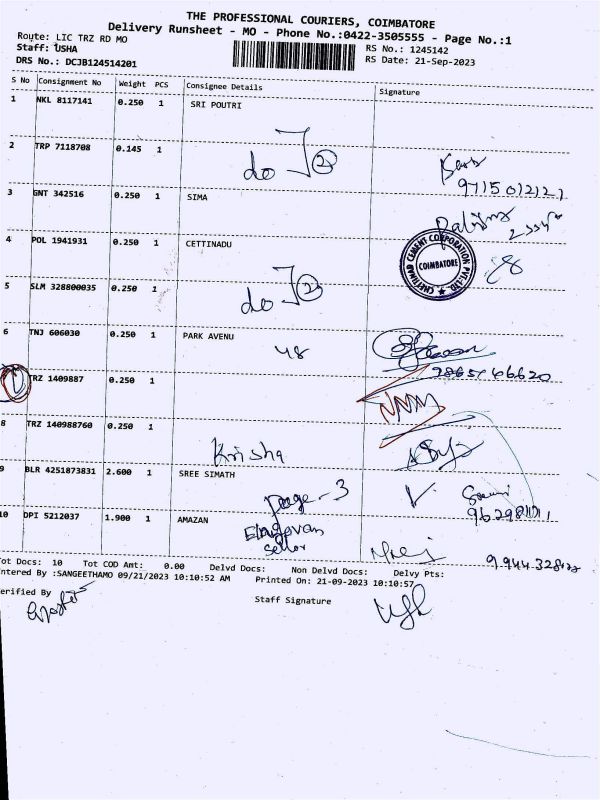 THE PROFESSIONAL COURIERS, COIMBATORE
Delivery Runsheet - MO - Phone No.:0422-3505555 - Page No.:1
Route: LIC TRZ RD MO
RS No.: 1245142
Staff: USHA
RS Date: 21-Sep-2023
DRS No.: DCJB124514201
S No Consignment No Weight PCS Consignee Details Signature
1 NKL 8117141 0.250 1 SRI POUTRI
2 TRP 7118708 0.145 1
do 2
9715012121
3 GNT 342516 0.250 1 SIMA
4 POL 1941931 0.250 1 CETTINADU
CHETTINAD CEMENT CORPORATION PVT LTD
COIMBATORE
5 SLM 328800035 0.250 1
do 2
6 TNJ 606030 0.250 1 PARK AVENU
48
TRZ 1409887 0.250 1
8 TRZ 140988760 0.250 1
Krisha
9 BLR 4251873831 2.600 1 SREE SIMATH
page-3
10 DPI 5212037 1.900 1 AMAZAN
Elagovan
Tot Docs: 10 Tot COD Amt: 0.00 Delvd Docs: Non Delvd Docs: Delvy Pts:
Entered By :SANGEETHAMO 09/21/2023 10:10:52 AM Printed On: 21-09-2023 10:10:57
Verified By
Staff Signature